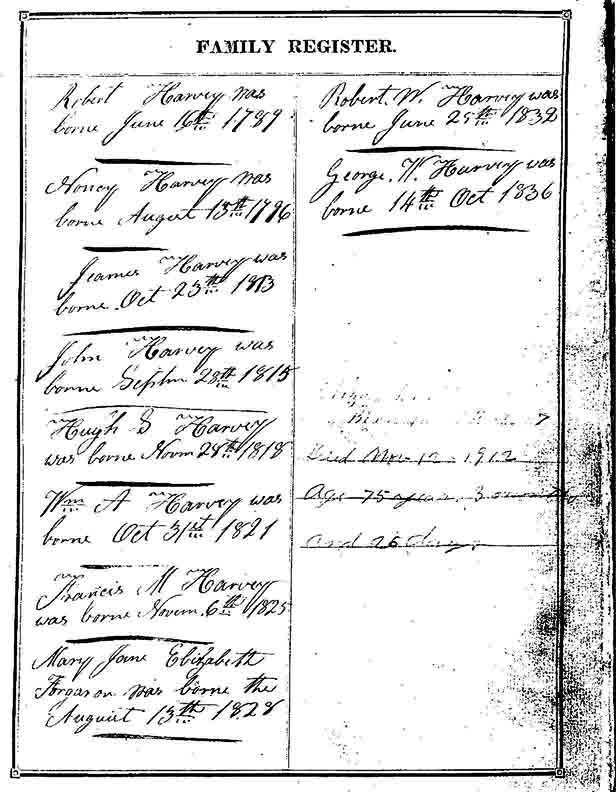 FAMILY REGISTER.
Robert Harvey was
borne June 16th 1789
Noncy Harvey was
borne August 13th 1796
Jeames Harvey was
borne Oct 23th 1813
John Harvey was
borne Septm 28th 1815
Hugh G Harvey
was borne Novm 28th 1818
Wm A Harvey was
borne Oct 31st 1821
Francis M Harvey
was borne Novem. 6th 1825
Mary Jane Elizabeth
Forgason was borne the
August 13th 1828
Robert. W. Harvey was
borne June 25th 1832
George. W. Harvey was
borne 14th Oct 1836
Died Nov 12 1912
Age 75 years, 3 months
and 26 days